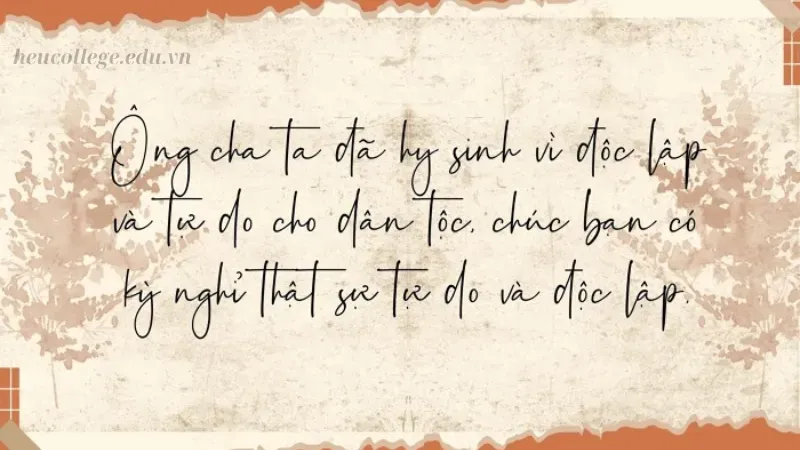 heucollege.edu.vn
Ông cha ta đã hy sinh vì độc lập
và tư do cho dân tộc, chúc bạn có
kỳ nghỉ thật sự tự do và độc lập.